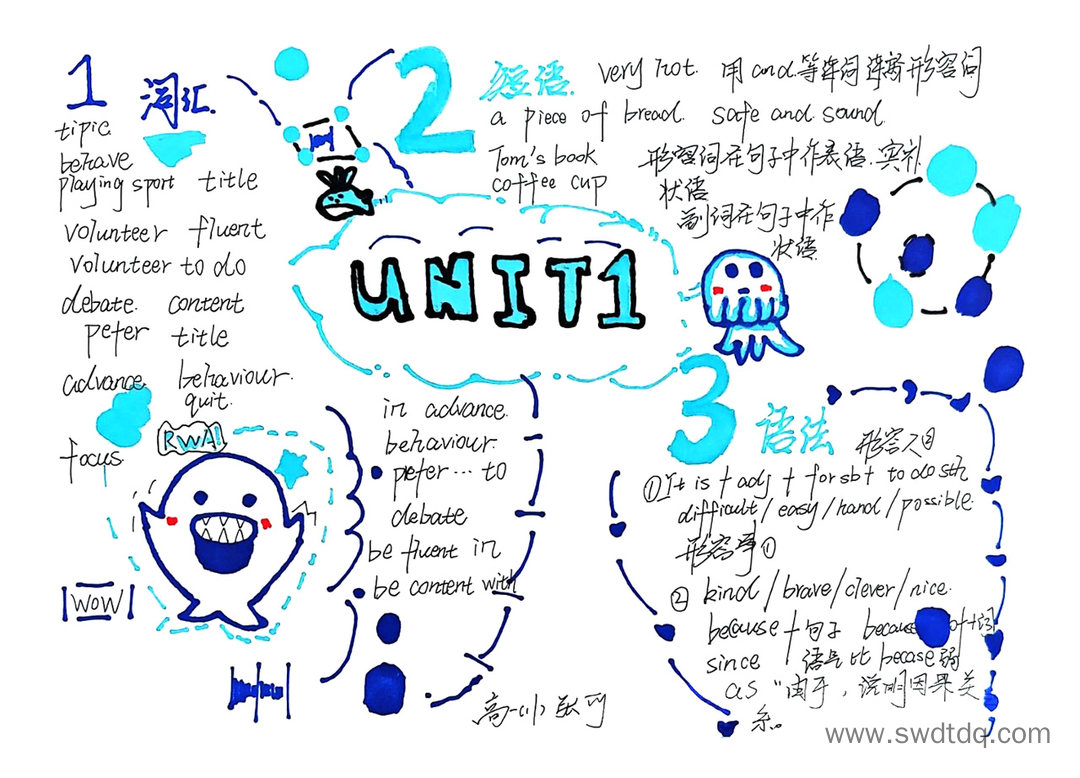 1 词汇
tipic
behave
playing sport title
volunteer fluent
volunteer to do
debate. content
pefer title
advance behaviour.
quit.
focus
RWA!
WOW
2 短语
very hot. 用and等连词连接形容词
a piece of bread. safe and sound
Tom's book
coffee cup
形容词在句子中作表语.宾补
状语
副词在句子中作
状语
UNIT1
in advance.
behaviour.
pefer... to
debate
be fluent in
be content with
3 语法
形容人
①It is + adj + for sbt to do sth
difficult/easy/hand/possible
形容事①
② kind/brave/clever/nice.
because + 句子 because of+词
since 语气比becase弱
as "由于,说明因果关
系。
高一(1)
www.swdtdq.com